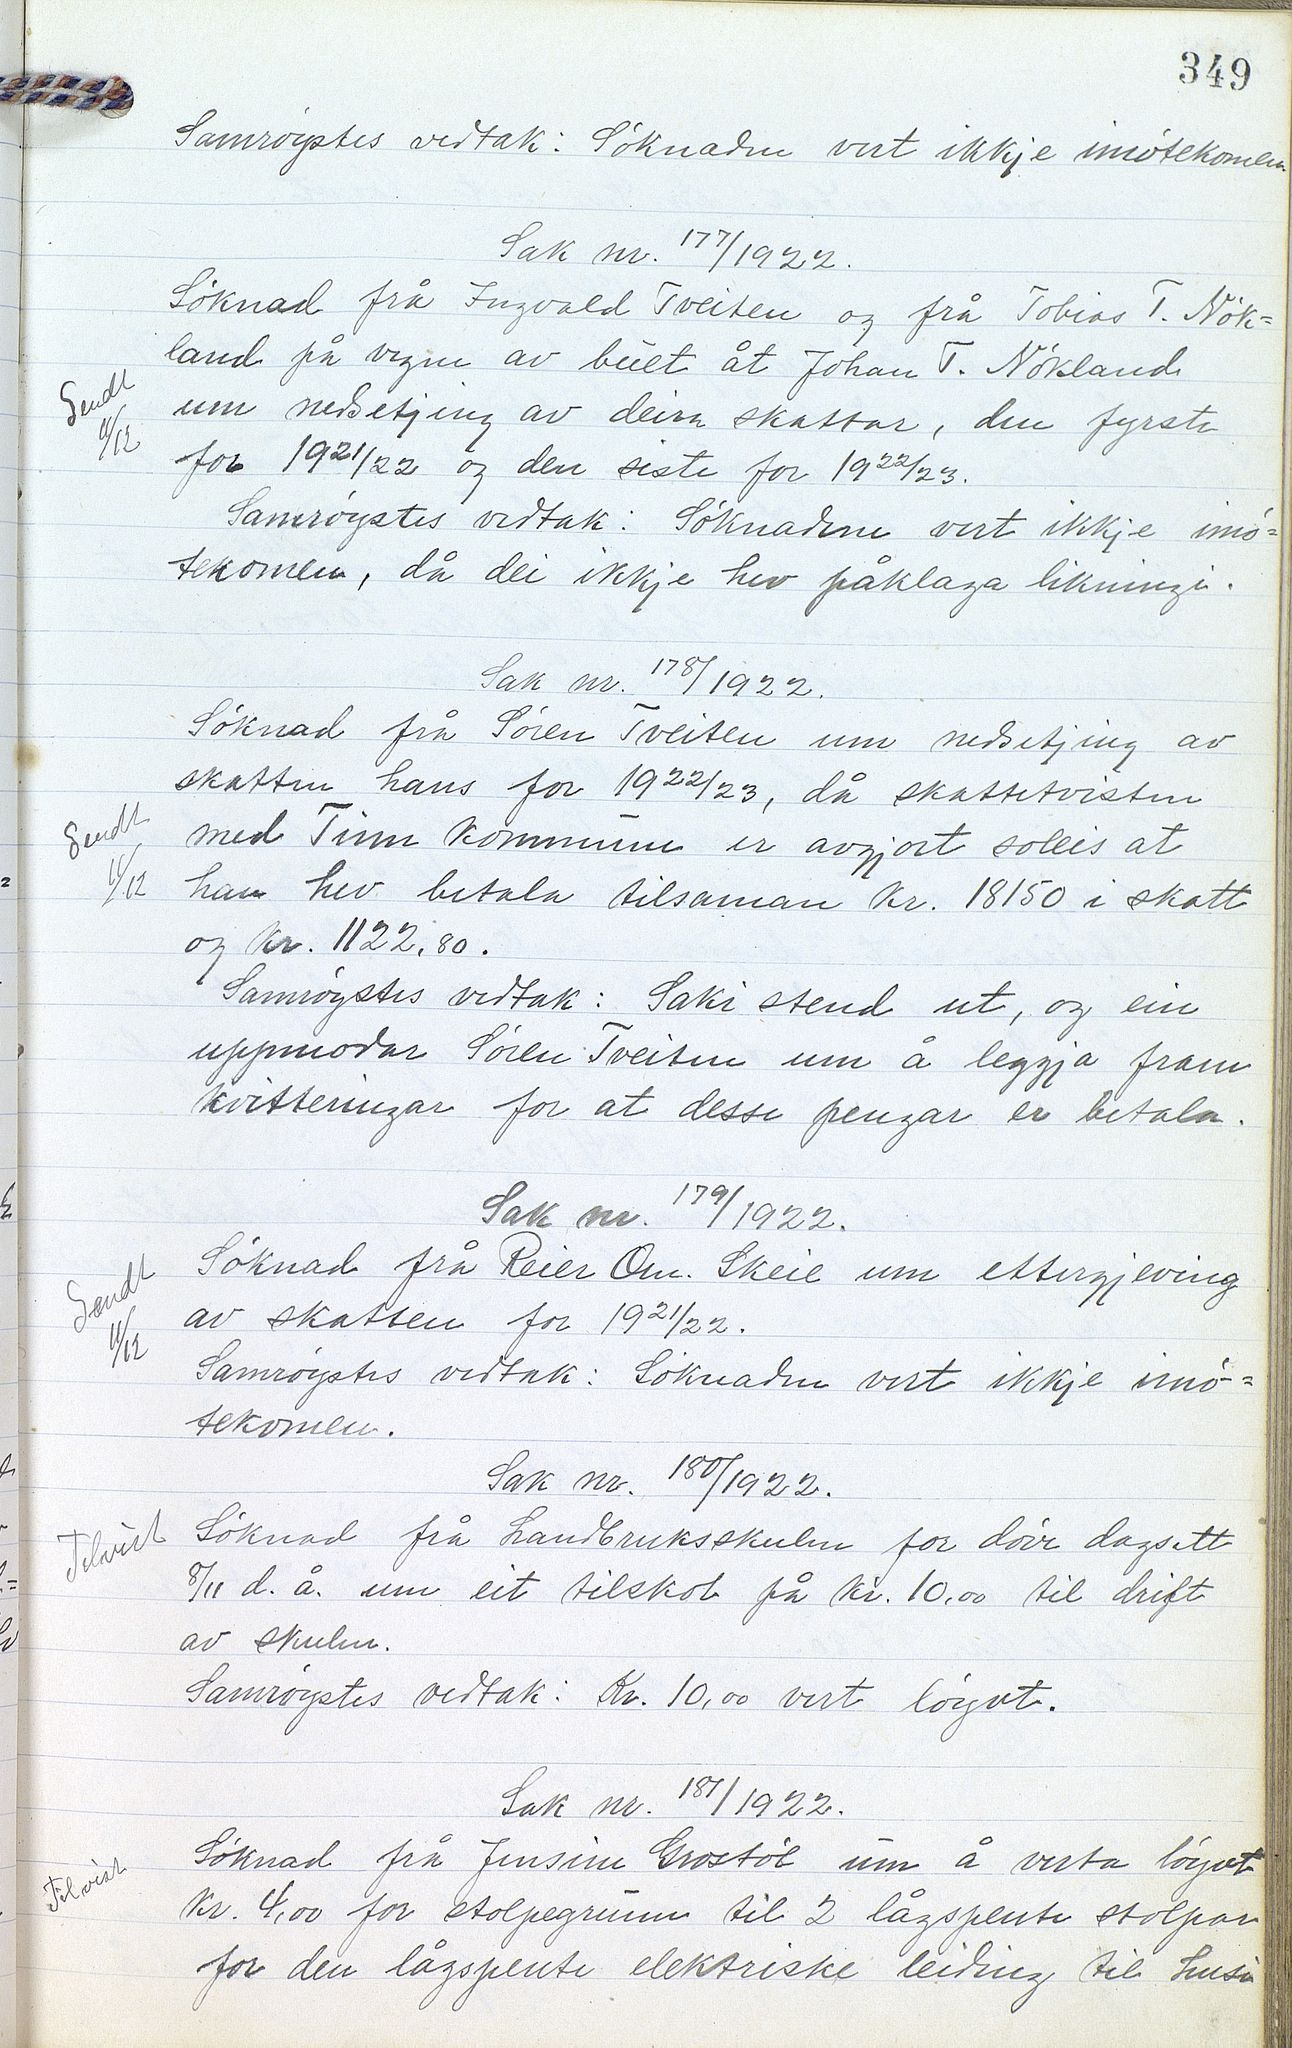 349
Samrøystes vedtak: Søknaden vert ikkje imøtekomen.
Sak nr. 177/1922.
Søknad frå Ingvald Tveiten og frå Tobias T. Nøk=
land på vegne av buet åt Johan T. Nøkland
Sendt 11/12
um nedsetjing av deira skattar, den fyrste
for 1921/22 og den siste for 1922/23.
Samrøystes vedtak: Søknadene vert ikkje imø=
tekomen, då dei ikkje hev påklaga likningi.
Sak nr. 178/1922.
Søknad frå Søren Tveiten um nedsetjing av
skatten hans for 1922/23, då skattetvisten
Sendt 11/12
med Tinn kommune er avgjort soleis at
han hev betala tilsaman kr. 18150 i skatt
og kr. 1122,80.
Samrøystes vedtak: Saki stend ut, og ein
uppmodar Søren Tveiten um å leggja fram
kvitteringar for at desse pengar er betala.
Sak nr. 179/1922.
Sendt 11/12
Søknad frå Reier Om. Skeie um ettergjeving
av skatten for 1921/22.
Samrøystes vedtak: Søknaden vert ikkje imø=
tekomen.
Sak nr. 180/1922.
Tilvist
Søknad frå Landbruksskulen for døve dagsett
8/11 d. å. um eit tilskot på kr. 10,00 til drift
av skulen.
Samrøystes vedtak: Kr. 10,00 vert løyvt.
Sak nr. 181/1922.
Tilvist
Søknad frå Jensine Grostøl um å verta løyvt
kr. 4,00 for stolpegrunn til 2 lågspente stolpar
for den lågspente elektriske leiding til husi